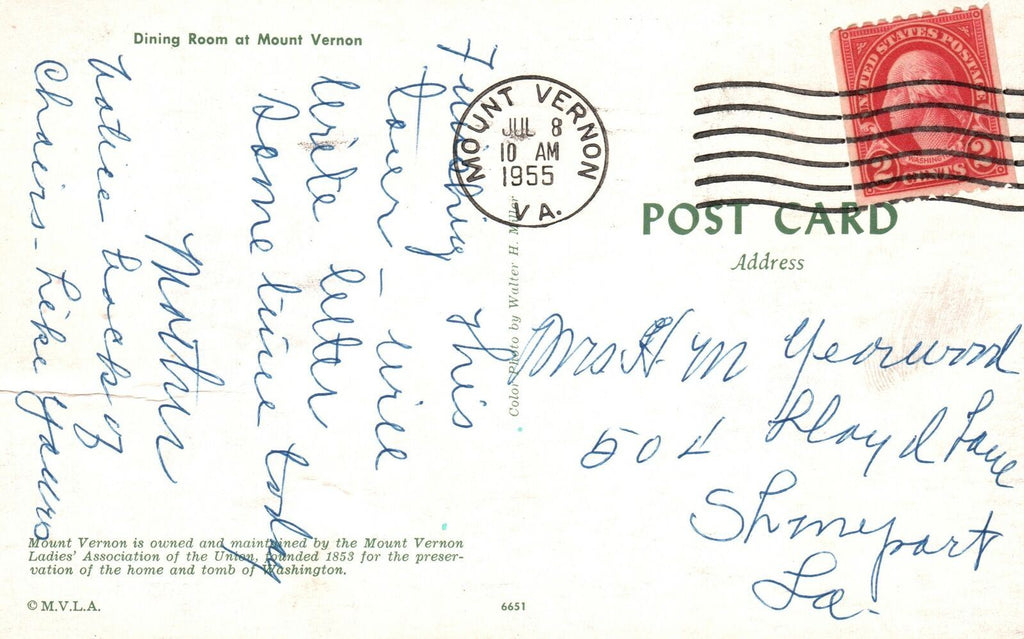 Dining Room at Mount Vernon
Finishing this
tour - will
write letter
sometime today
Mother
Notice backs of
chairs - like yours
Mount Vernon is owned and maintained by the Mount Vernon
Ladies' Association of the Union, founded 1853 for the preser-
vation of the home and tomb of Washington.
© M.V.L.A.
6651
Color Photo by Walter H. Miller
MOUNT VERNON
JUL 8
10 AM
1955
VA.
UNITED STATES POSTAGE
WASHINGTON
2 CENTS 2
POST CARD
Address
Mrs H M Yearwood
504 Lloyd Lane
Shreveport
La.